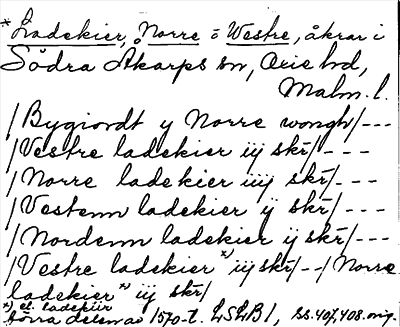 *Ladekier, Norre o Westre, åkrar i
Södra Åkarps sn, Oxie hd,
Malm. l.
/Bygiordt y Norre wongh/---
/Vestre ladekier iij skr/---
/Norre ladekier iiij skr/---
/Vestenn ladekier ij skr/---
/Nordenn ladekier ij skr/---
/Vestre ladekier *) iij skr/--/Norre
ladekier *) iij skr/
*) el. ladekiir
1570-t. LSLB1, ss. 407, 408. orig.